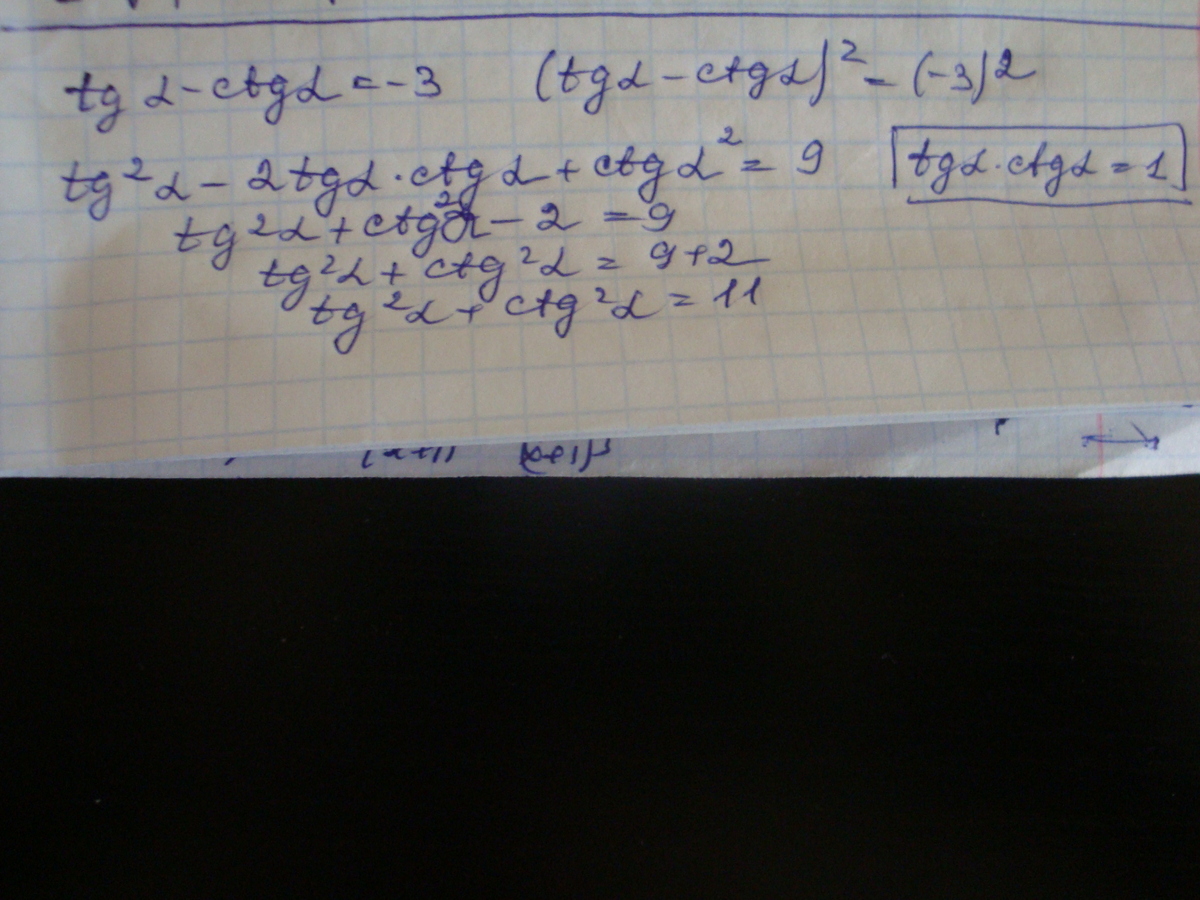 tg α - ctg α = -3 (tg α - ctg α)² = (-3)2
tg²α - 2tg α · ctg α + ctg α² = 9 tg α · ctg α = 1
tg²α + ctg²α - 2 = 9
tg²α + ctg²α = 9+2
tg²α + ctg²α = 11